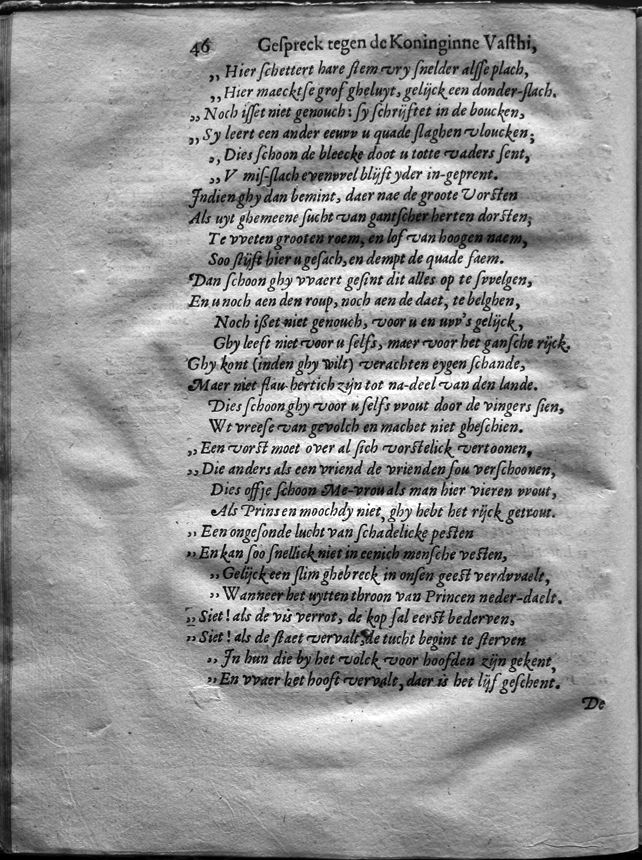 46 Gespreck tegen de Koninginne Vasthi,
„ Hier schettert hare stem vry snelder alsse plach,
„ Hier maecktse grof gheluyt, gelijck een donder-slach.
„ Noch isset niet genouch: sy schrijftet in de boucken,
„ Sy leert een ander eeuvv u quade slaghen vloucken;
„ Dies schoon de bleecke doot u totte vaders sent,
„ V mis-slach evenvvel blijft yder in-geprent.
Indien ghy dan bemint, daer nae de groote Vorsten
Als uyt ghemeene sucht van gantscher herten dorsten;
Te vveten grooten roem, en lof van hoogen naem,
Soo stijft hier u gesach, en dempt de quade faem.
Dan schoon ghy vvaert gesint dit alles op te svvelgen,
En u noch aen den roup, noch aen de daet, te belghen,
Noch ißet niet genouch, voor u en uvv's gelijck,
Ghy leeft niet voor u selfs, maer voor het gansche rijck.
Ghy kont (inden ghy wilt) verachten eygen schande,
Maer niet flau-hertich zijn tot na-deel van den lande.
Dies schoon ghy voor u selfs vvout door de vingers sien,
Wt vreese van gevolch en machet niet gheschien.
„ Een vorst moet over al sich vorstelick vertoonen,
„ Die anders als een vriend de vrienden sou verschoonen,
Dies offje schoon Me-vrou als man hier vieren vvout,
Als Prins en moochdy niet, ghy hebt het rijck getrout.
„ Een ongesonde lucht van schadelicke pesten
„ En kan soo snellick niet in eenich mensche vesten,
„ Gelijck een slim ghebreck in onsen geest verdvvaelt,
„ Wanneer het uytten throon van Princen neder-daelt.
„ Siet! als de vis verrot, de kop sal eerst bederven,
„ Siet! als de staet vervalt, de tucht begint te sterven
„ In hun die by het volck voor hoofden zijn gekent,
„ En vvaer het hooft vervalt, daer is het lijf geschent.
De